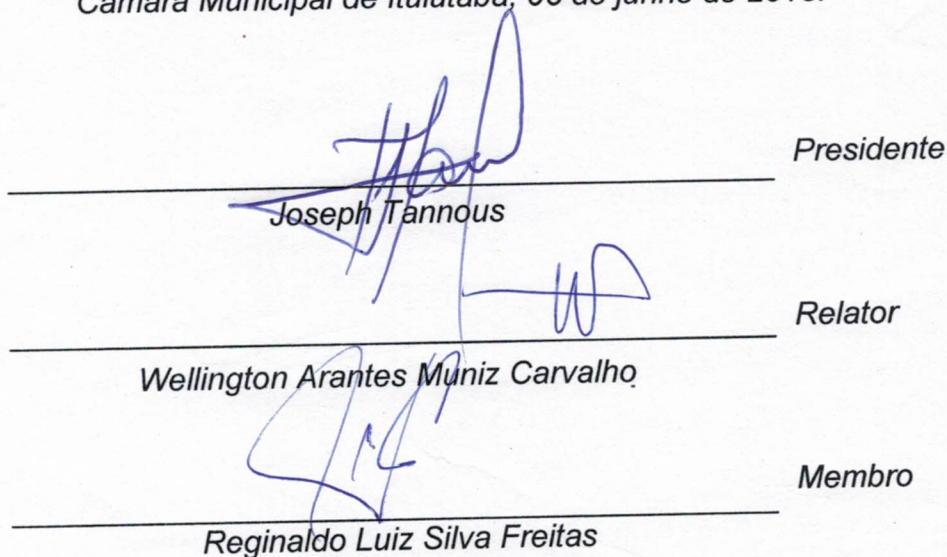 Câmara Municipal de Ituiutaba, de junho de
Presidente
Joseph Tannous
Relator
Wellington Arantes Muniz Carvalho
Membro
Reginaldo Luiz Silva Freitas